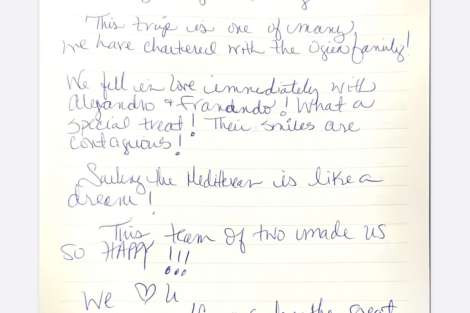 This trip is one of many
we have chartered with the Ogien family!
We fell in love immediately with
Alejandro & Franando! What a
special treat! Their smiles are
contagious!
Sailing the Mediterean is like a
dream!
This team of two made us
SO HAPPY!!!
We ♡ U
the great